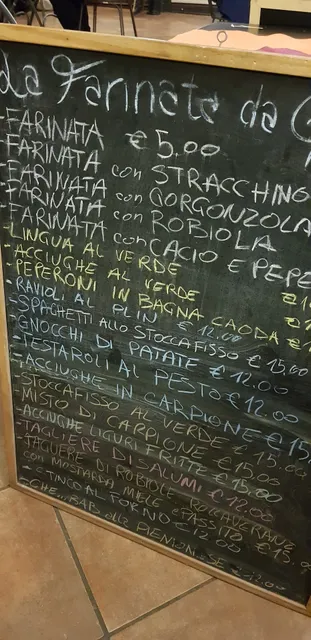 La Farinata da
- FARINATA € 5.00
- FARINATA con STRACCHINO
- FARINATA con GORGONZOLA
- FARINATA con ROBIOLA
- FARINATA con CACIO E PEPE
- LINGUA AL VERDE
- ACCIUGHE AL VERDE
- PEPERONI IN BAGNA CAODA €
- RAVIOLI AL PLIN € 12.00
- SPAGHETTI ALLO STOCCAFISSO € 15.00
- GNOCCHI DI PATATE € 12.00
- TESTAROLI AL PESTO € 12.00
- ACCIUGHE IN CARPIONE € 15.
- STOCCAFISSO AL VERDE € 15.00
- MISTO DI CARPIONE € 15.00
- ACCIUGHE LIGURI FRITTE € 15.00
- TAGLIERE DI SALUMI € 12.00
- TAGLIERE DI ROBIOLE ROCCAVERANO
CON MOSTARDA, MIELE E PASSITO € 15.
- TINCO AL FORNO € 12.00
- CHE... alla PIEMONTESE € 12.00